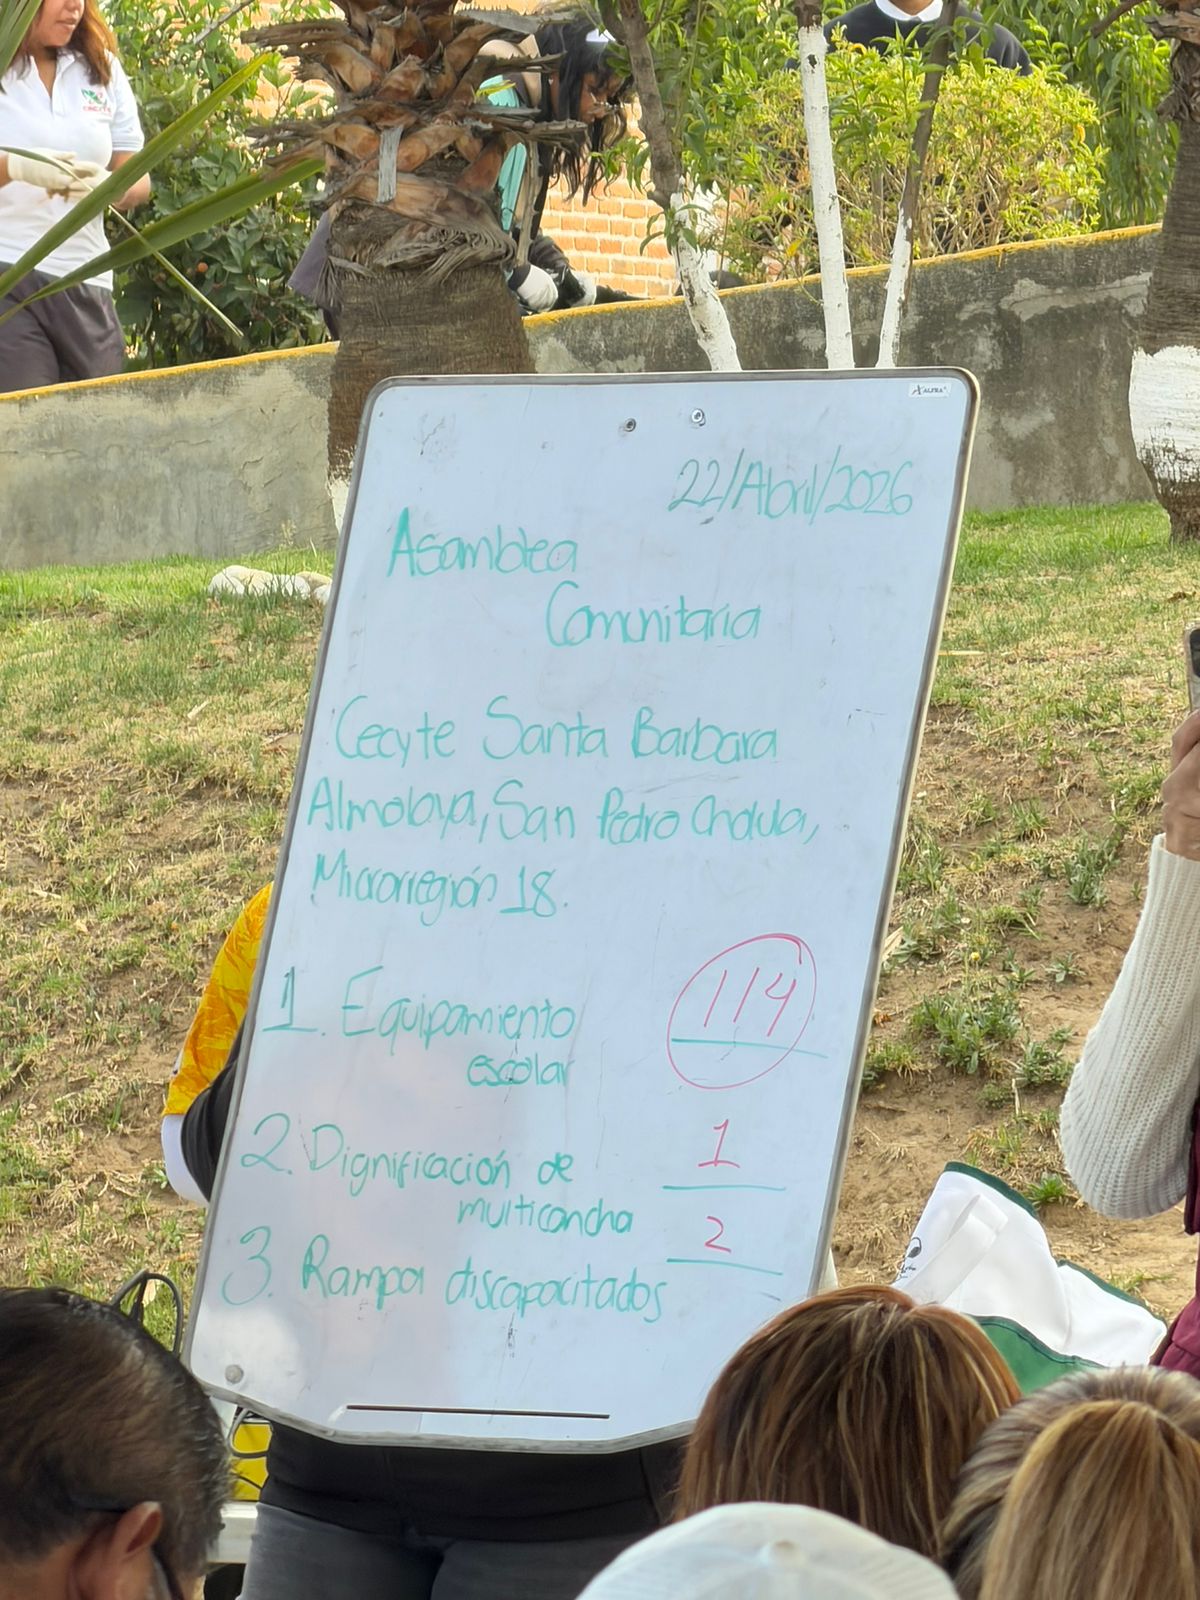 ALFRA
22/Abril/2026
Asamblea
Comunitaria
Cecyte Santa Barbara
Almoloya, San Pedro Cholula,
Microrregión 18.
1. Equipamiento 114
escolar
2. Dignificación de 1
multicancha
3. Rampa discapacitados 2